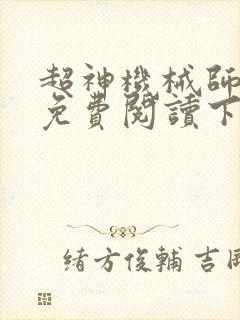 超神機械師
免費閱讀下
緒方俊輔 吉岡